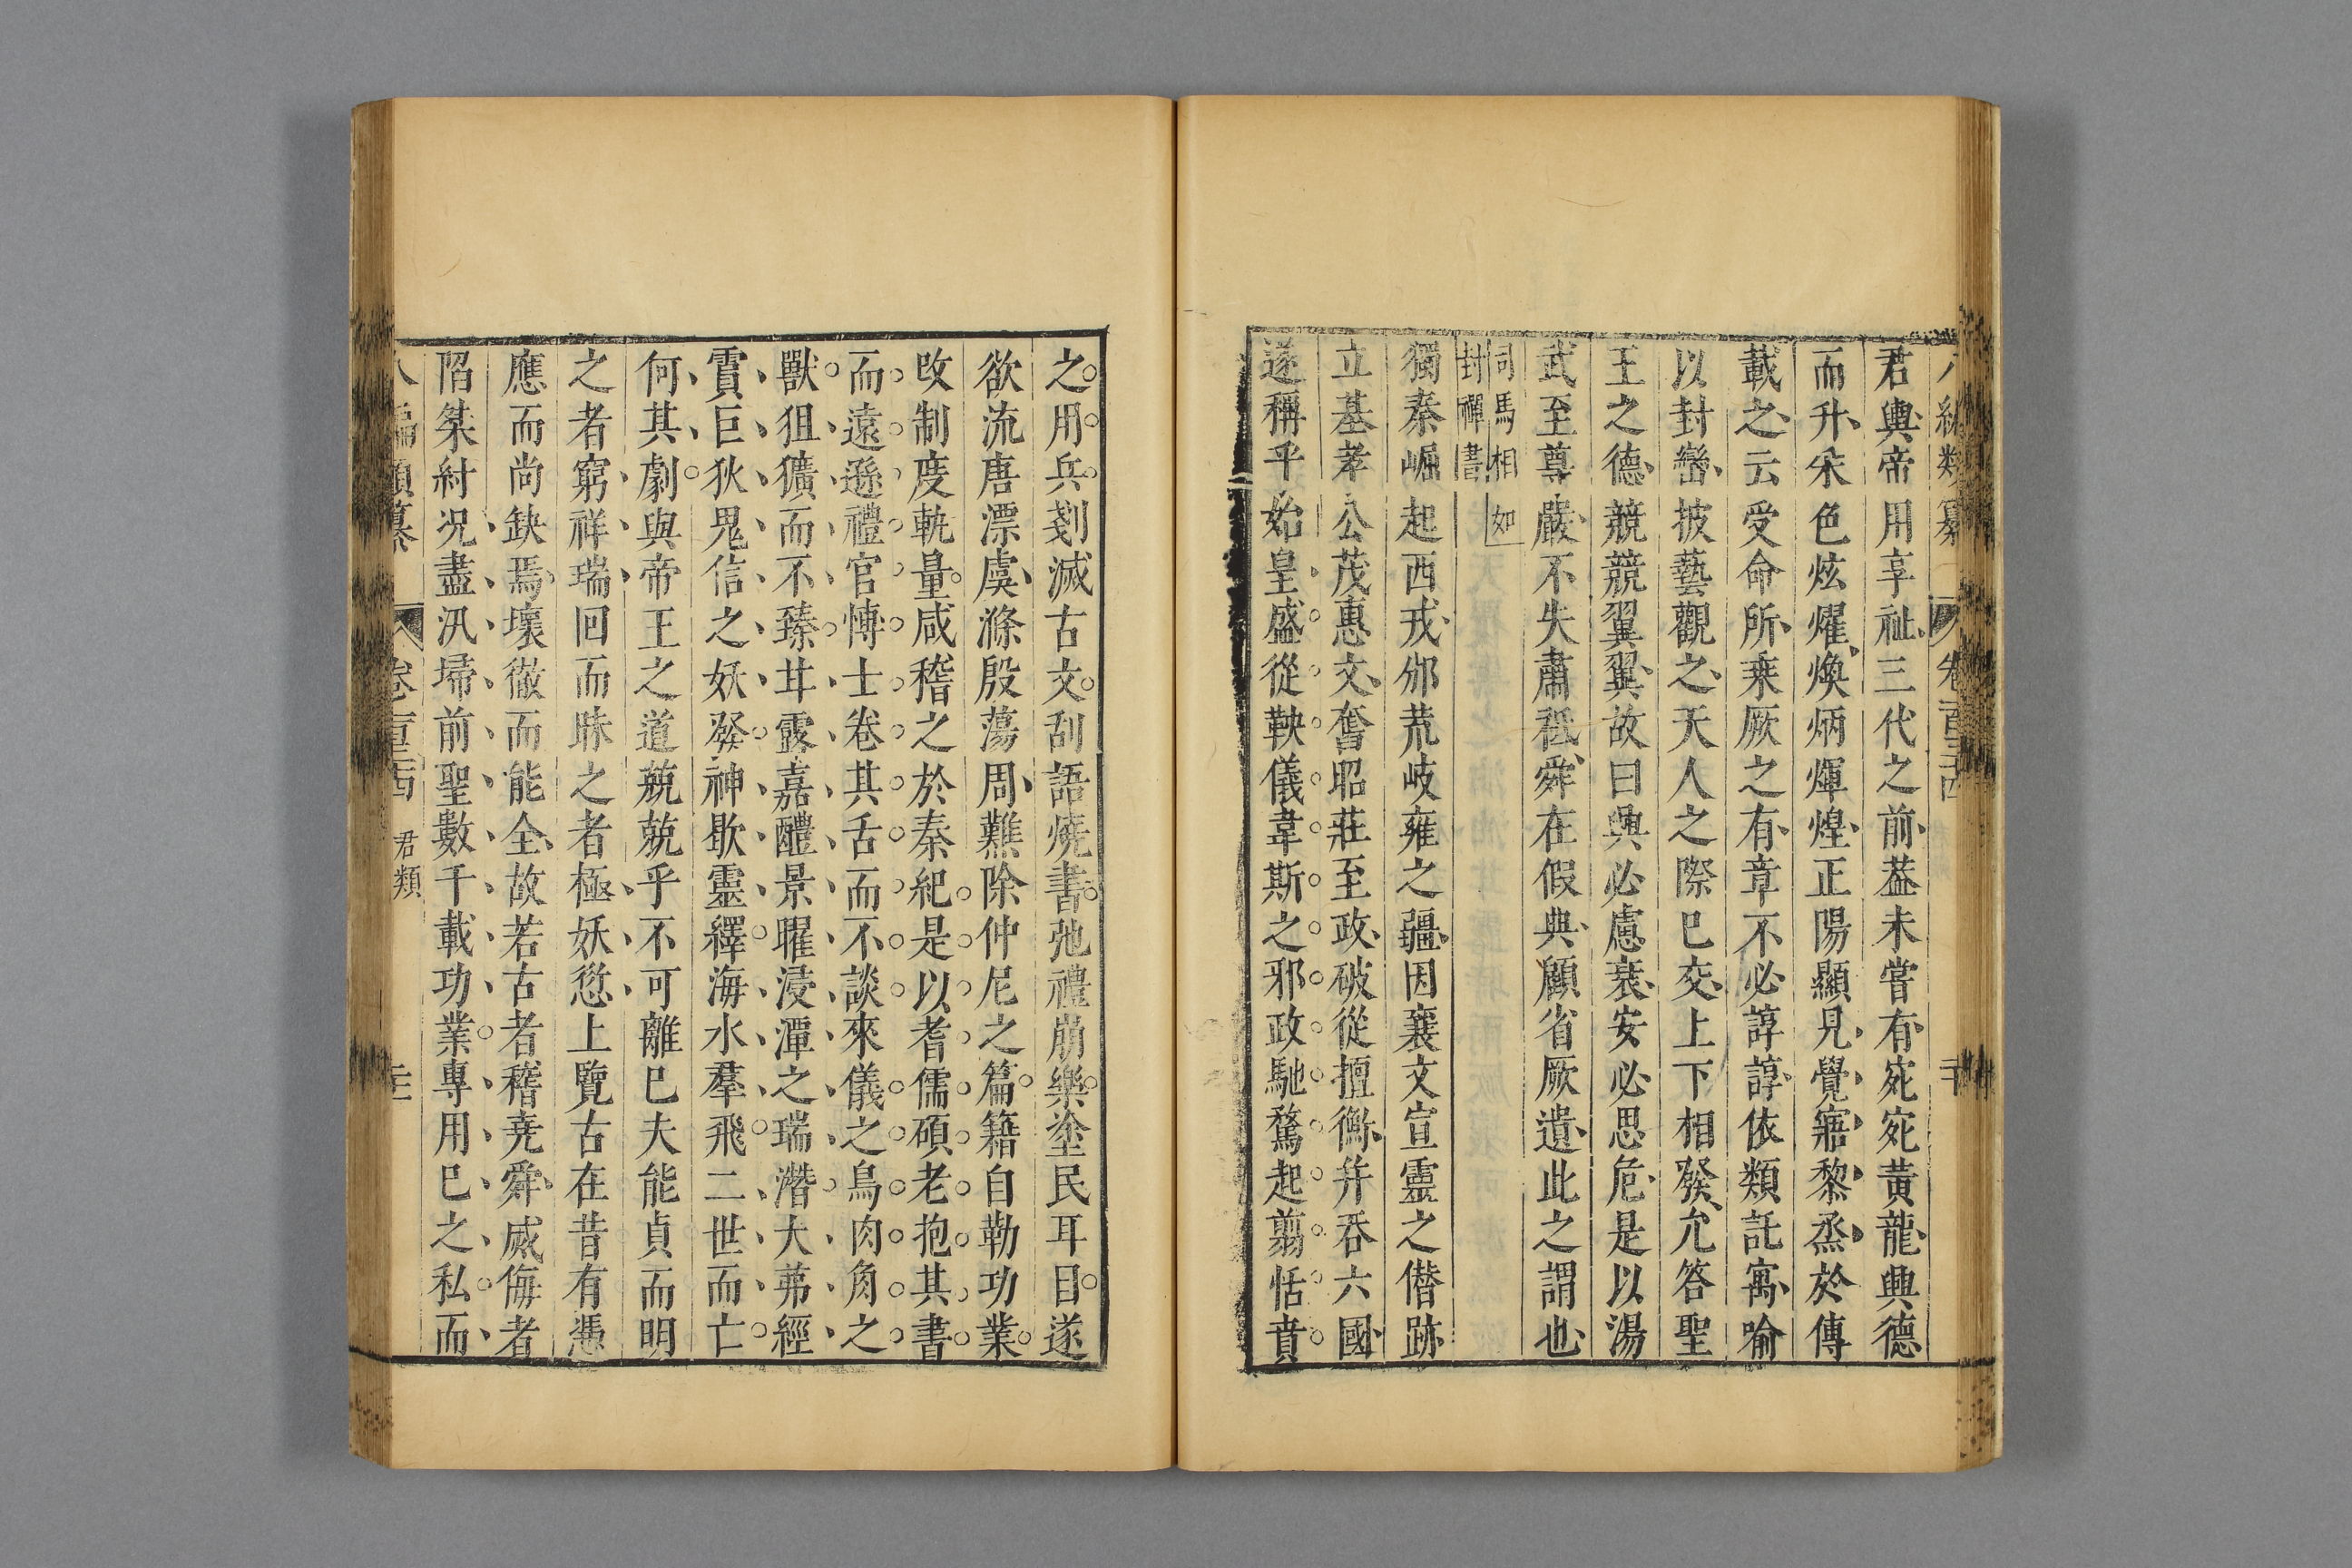 八編類纂 卷一百三十四 二十
君輿帝用享祉三代之前葢未嘗有宛宛黃龍興德
而升采色炫燿煥炳煇煌正陽顯見覺寤黎烝於傳
載之云受命所乗厥之有章不必諄諄依類託寓喻
以封巒披藝觀之天人之際巳交上下相發允答聖
王之德兢兢翼翼故曰興必慮衰安必思危是以湯
武至尊嚴不失肅祗舜在假典顧省厥遺此之謂也
司馬相如
封禪書
獨秦崛起西戎邠荒岐雍之疆因襄文宣靈之僭跡
立基孝公茂惠文奮昭莊至政破從擅衡并吞六國
遂稱乎始皇盛從鞅儀韋斯之邪政馳騖起翦恬賁
之用兵剗滅古文刮語燒書弛禮崩樂塗民耳目遂
欲流唐漂虞滌殷蕩周難除仲尼之篇籍自勒功業
改制度軌量咸稽之於秦紀是以耆儒碩老抱其書
而遠遜禮官博士卷其舌而不談來儀之鳥肉角之
獸狙獷而不臻甘露嘉醴景曜浸潭之瑞潛大茀經
霣巨狄鬼信之妖發神歇靈繹海水羣飛二世而亡
何其劇與帝王之道兢兢乎不可離巳夫能貞而明
之者窮祥瑞回而昧之者極妖愆上覽古在昔有憑
應而尚缺焉壞徹而能全故若古者稽堯舜威侮者
陷桀紂况盡汛埽前聖數千載功業專用巳之私而
八編類纂 卷一百三十四 君類 二十一